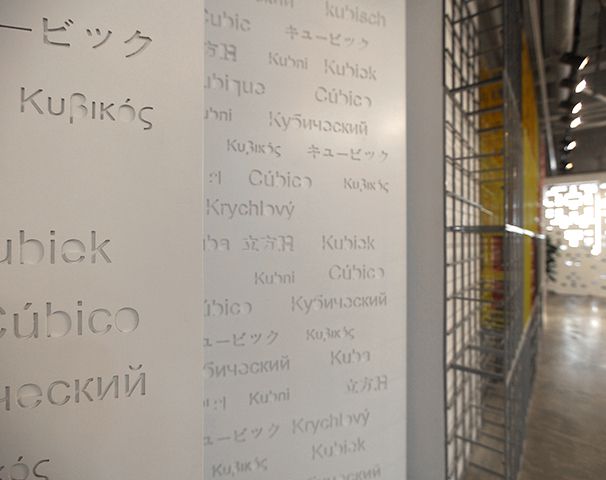 ービック
Κυβικός
ubiek
Cúbico
ческий
κός
kubisch
ubic キュービック
立方 Kubni Kubiek
ubique Cúbico
bni Кубический
Κυβικός キュービック
Cúbico Κυβικός
Krychlový
立方 Kubiek
Kubni Cúbico
úbico Кубический
ュービック Κυβικός
убический Kuba
Kubni 立方
ュービック Krychlový
Κυβικός Kubiek
убический